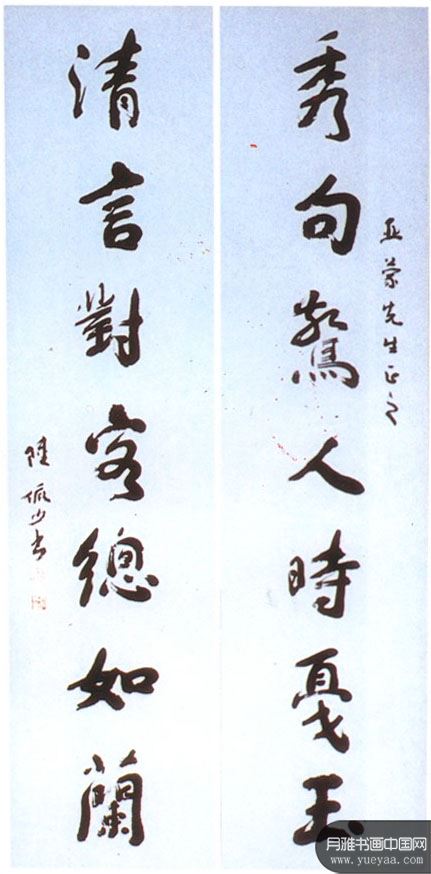 亚蒙先生正之
秀句驚人時戛玉
清言對客總如蘭
陸佩少書
月雅书画中国网
www.yueyaa.com